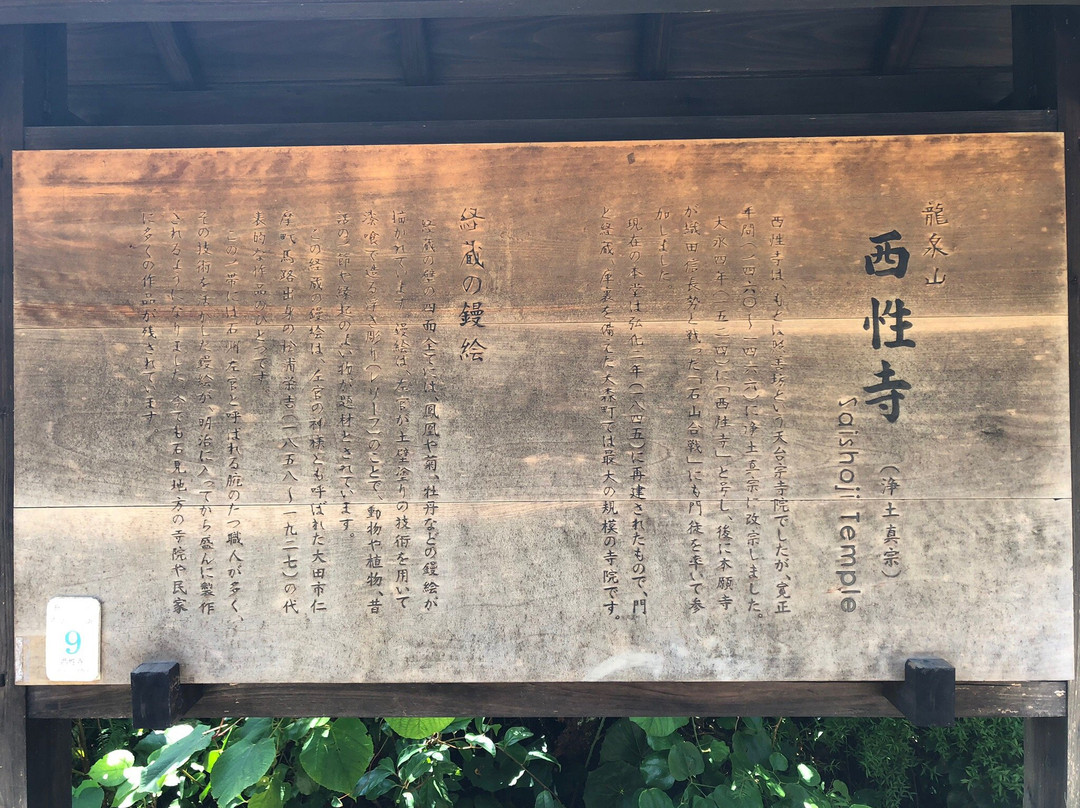 龍泉山
西性寺
(浄土真宗)
Saishoji Temple
西性寺は、もとは昭善坊という天台宗寺院でしたが、寛正
年間(一四六〇〜一四六六)に浄土真宗に改宗しました。
大永四年(一五二四)に「西性寺」と号し、後に本願寺
が織田信長勢と戦った「石山合戦」にも門徒を率いて参
加しました。
現在の本堂は弘化二年(一八四五)に再建されたもので、門
と経蔵、座裏を備えた大森町では最大の規模の寺院です。
経蔵の鏝絵
経蔵の壁の四面全てには、鳳凰や菊、牡丹などの鏝絵が
描かれています。鏝絵は、左官が土壁塗りの技術を用いて
漆喰で造る浮き彫り(レリーフ)のことで、動物や植物、昔
話の一節や縁起のよい物が題材とされています。
この経蔵の鏝絵は、左官の神様とも呼ばれた大田市仁
摩町馬路出身の松浦栄吉(一八五八〜一九二七)の代
表的な作品のひとつです。
この一帯には石州左官と呼ばれる腕のたつ職人が多く、
その技術をいかした鏝絵が、明治に入ってから盛んに製作
されるようになりました。今でも石見地方の寺院や民家
に多くの作品が残されています。
9